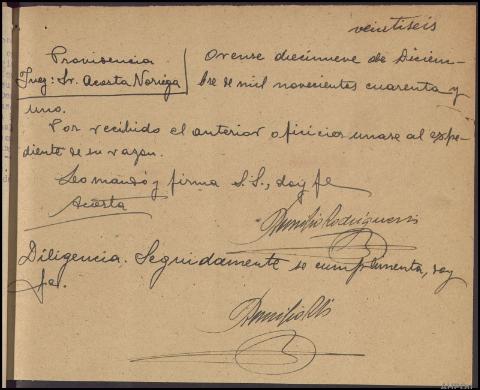 veintiseis
Providencia
Juez: Sr. Acosta Noriega
Orense diecinueve de Diciem-
bre de mil novecientos cuarenta y
uno.
Por recibido el anterior oficio unase al expe-
diente de su razon.
Lo mandó y firma S.S., doy fe
Acosta
Rodriguez
Diligencia. Seguidamente se cumplimenta, doy
fe.